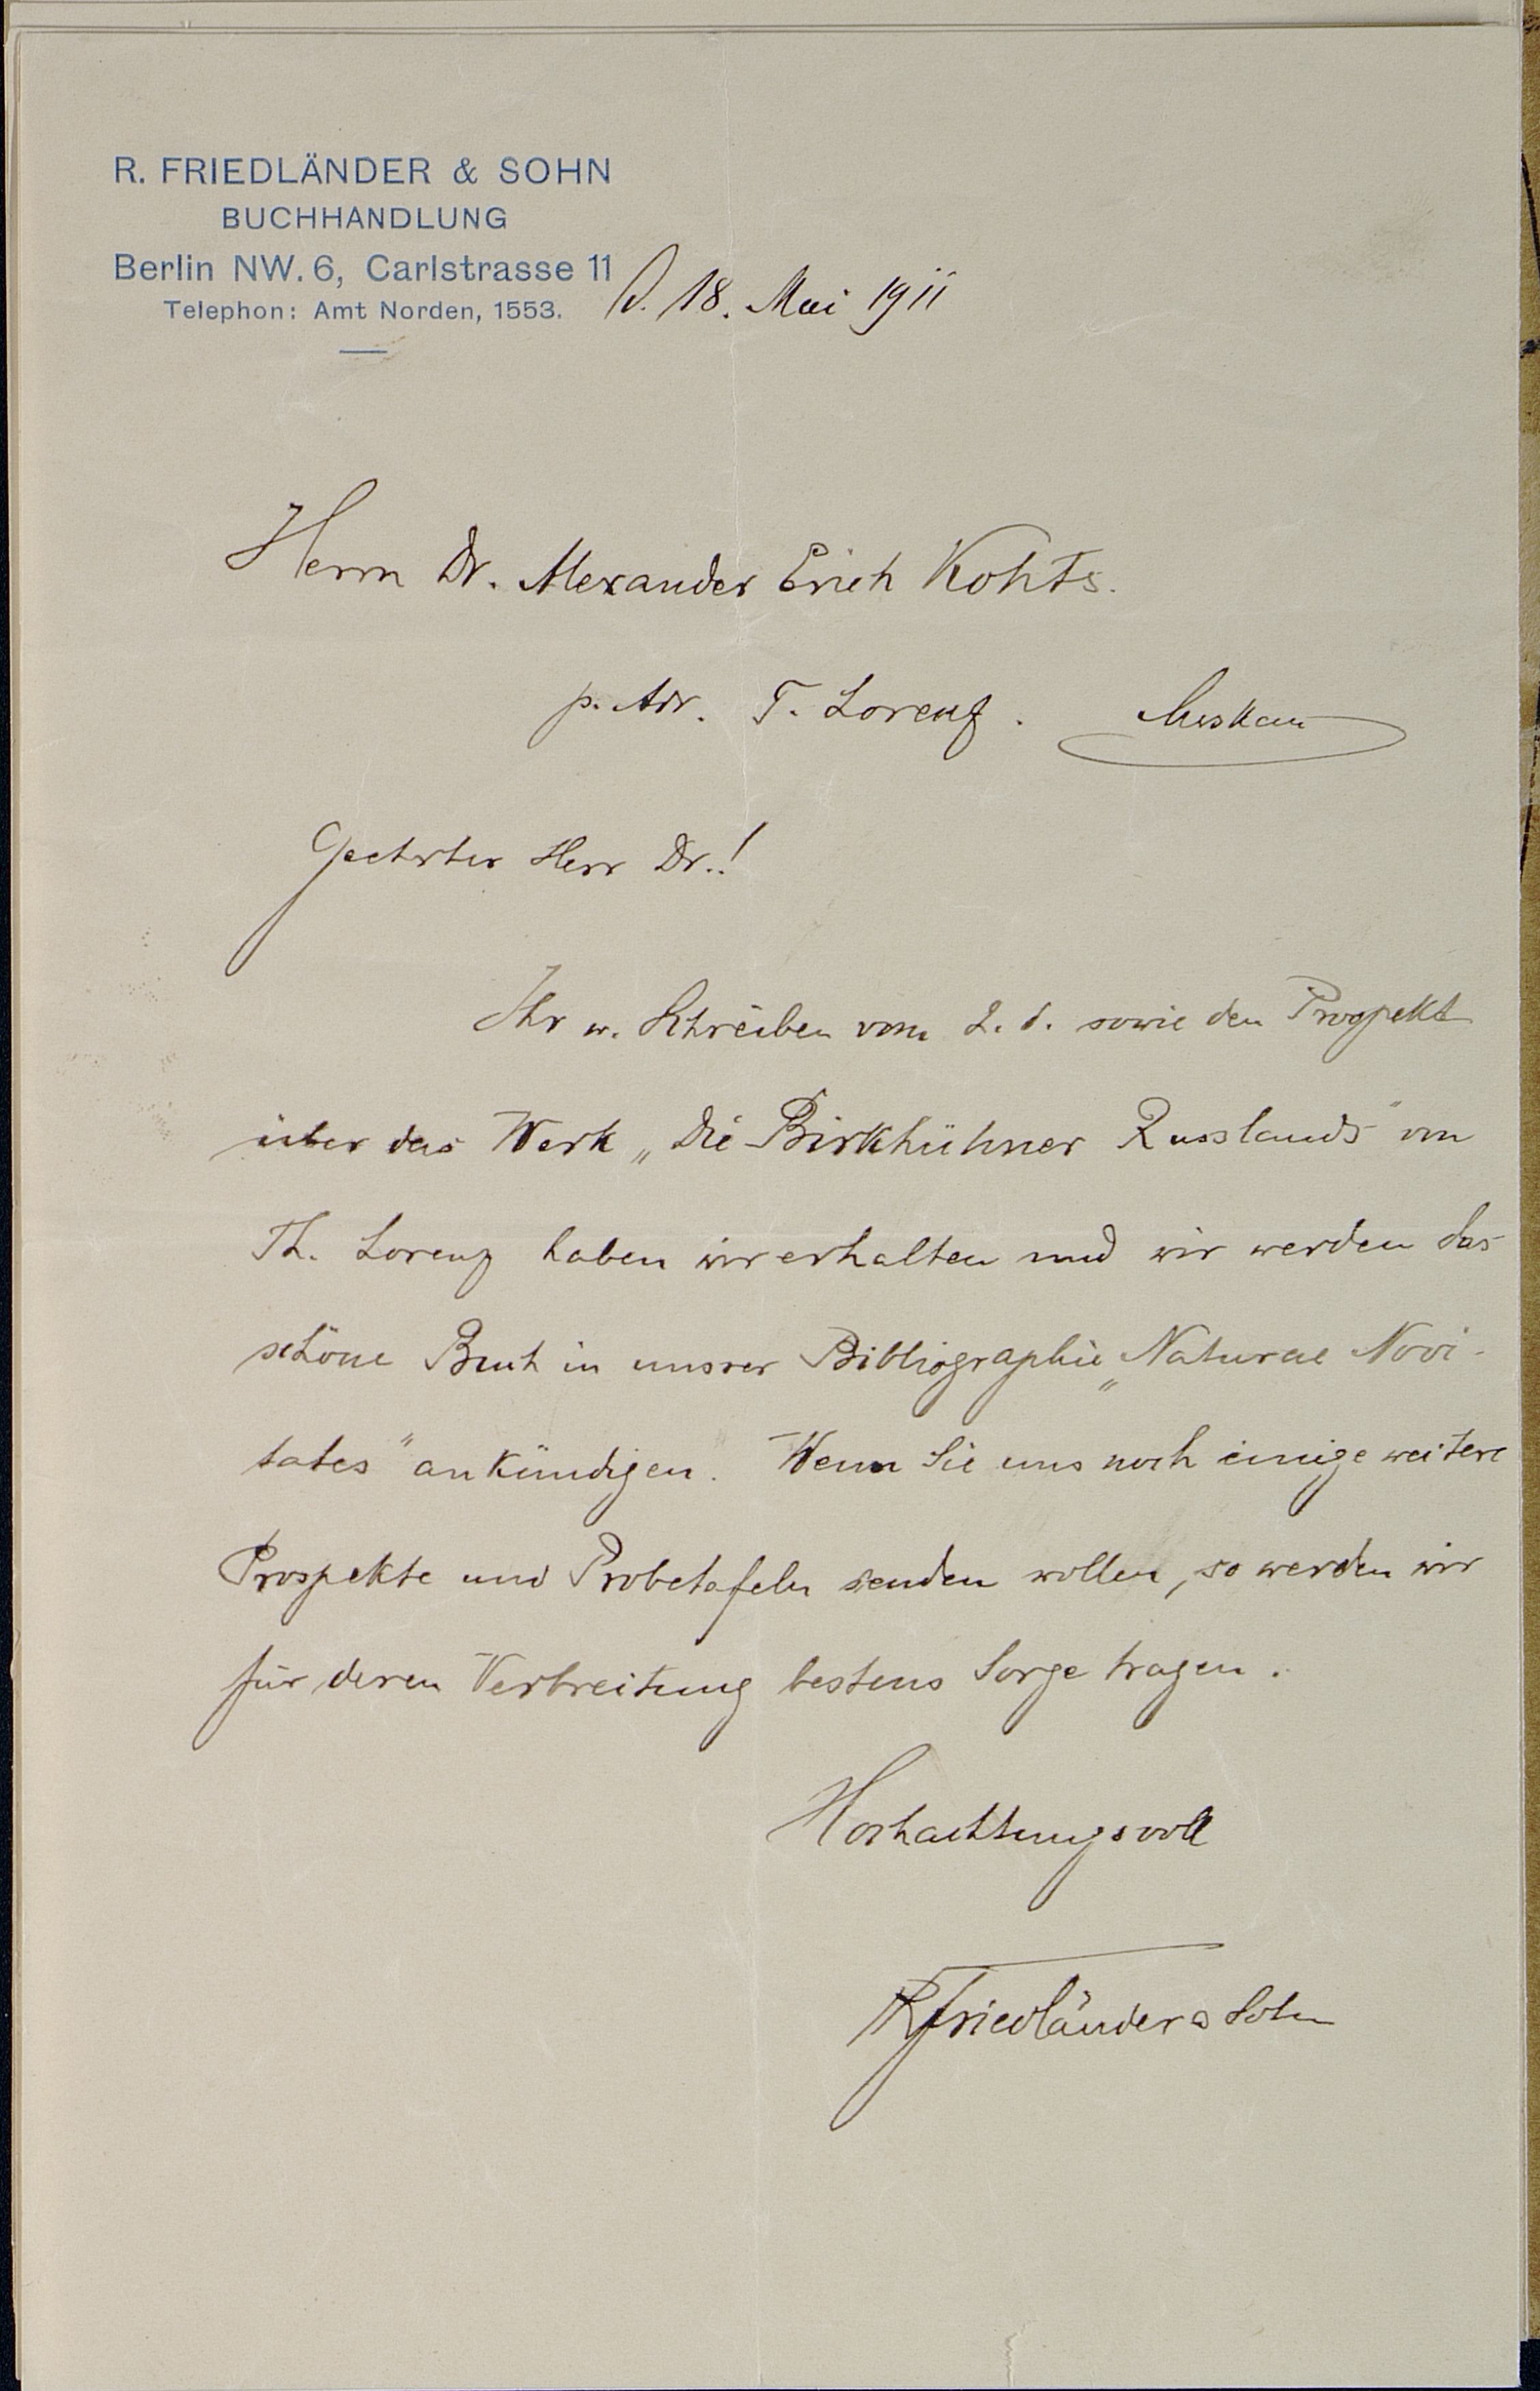 R. FRIEDLÄNDER & SOHN
BUCHHANDLUNG
Berlin NW. 6, Carlstrasse 11
Telephon: Amt Norden, 1553.
d. 18. Mai 1911
Herrn Dr. Alexander Erich Kohts.
p. Adr. T. Lorenz. Moskau
Geehrter Herr Dr.!
Ihr w. Schreiben vom 2. d. sowie den Prospekt
über das Werk „Die Birkhühner Russlands" von
Th. Lorenz haben wir erhalten und wir werden das
schöne Buch in unsrer Bibliographie „Naturae Novi-
tates" ankündigen. Wenn Sie uns noch einige weitere
Prospekte und Probetafeln senden wollen, so werden wir
für deren Verbreitung bestens Sorge tragen.
Hochachtungsvoll
R Friedländer & Sohn